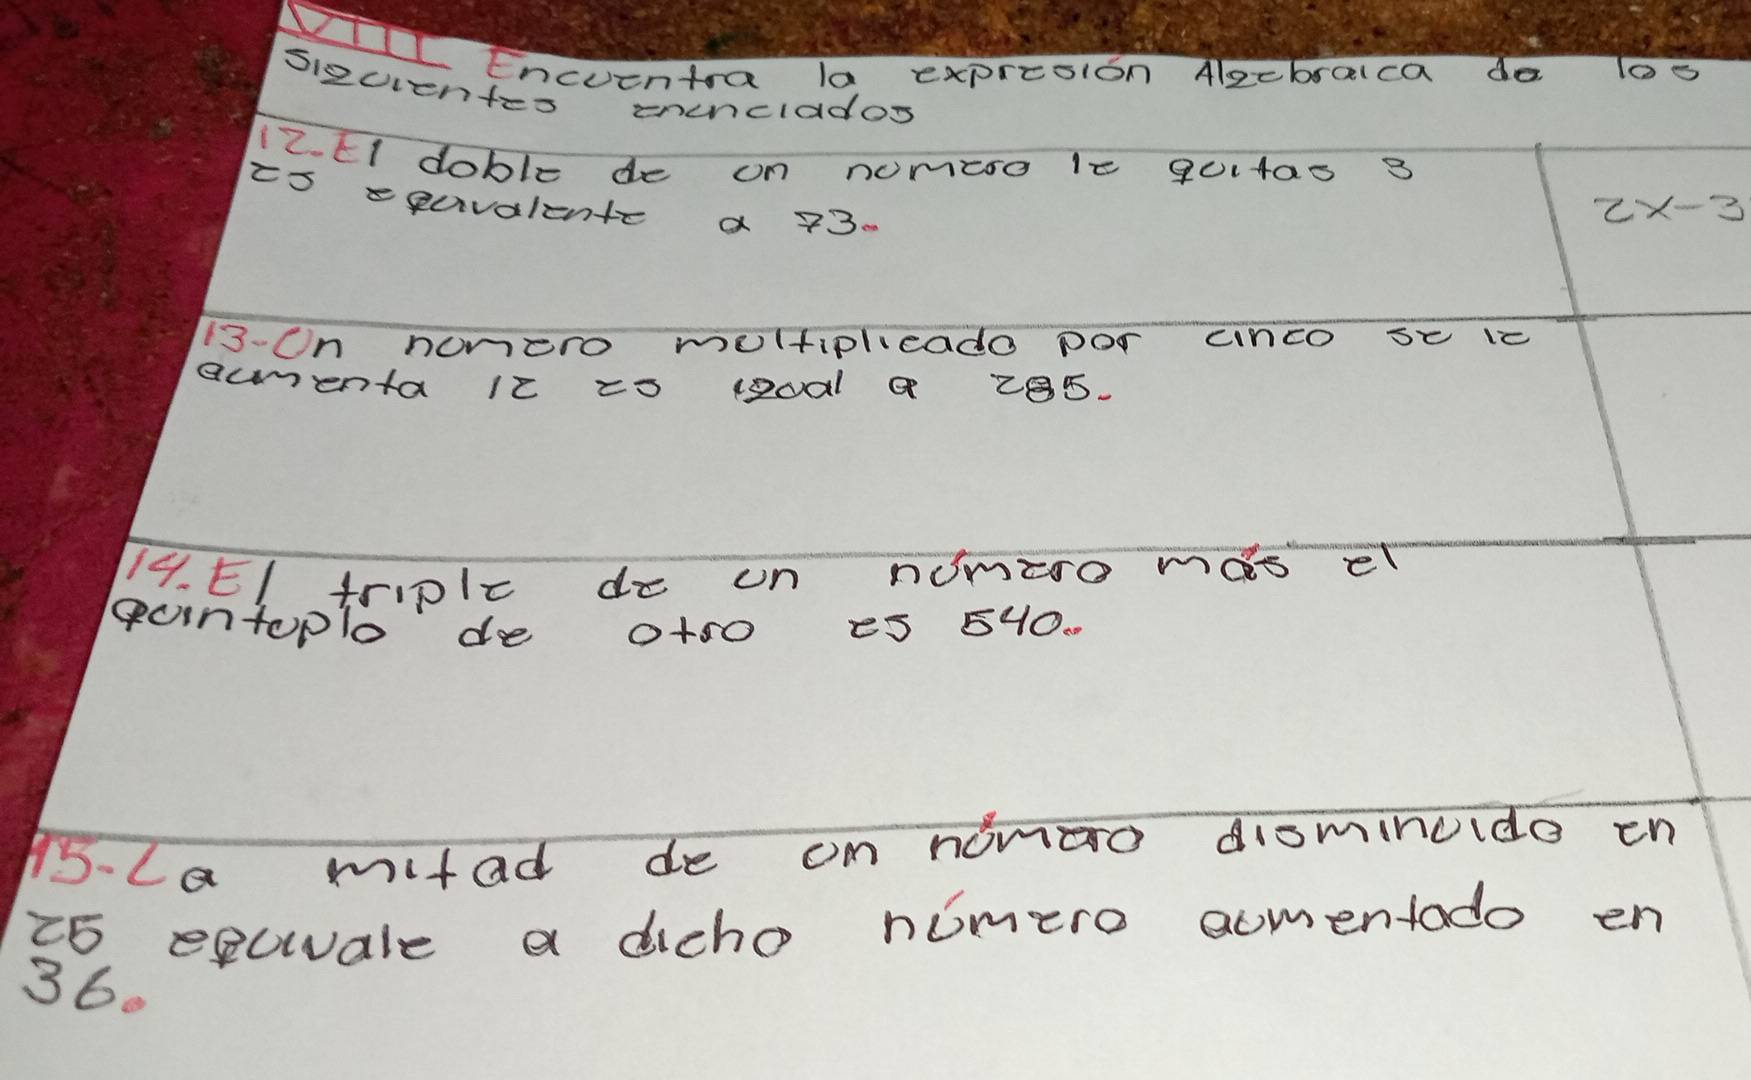 VIII Encuentra la expresión Algebraica de los
siguientes enunciados
12-El doble de un numero le quitas 3
es equivalente a 73.
2x-3
13-Un numero multiplicado por cinco se le
aumenta 12 es igual a 285.
14.El triple de un número más el
quintuplo de otro es 540.
15-La mitad de un número disminuido en
25 equivale a dicho número aumentado en
36.